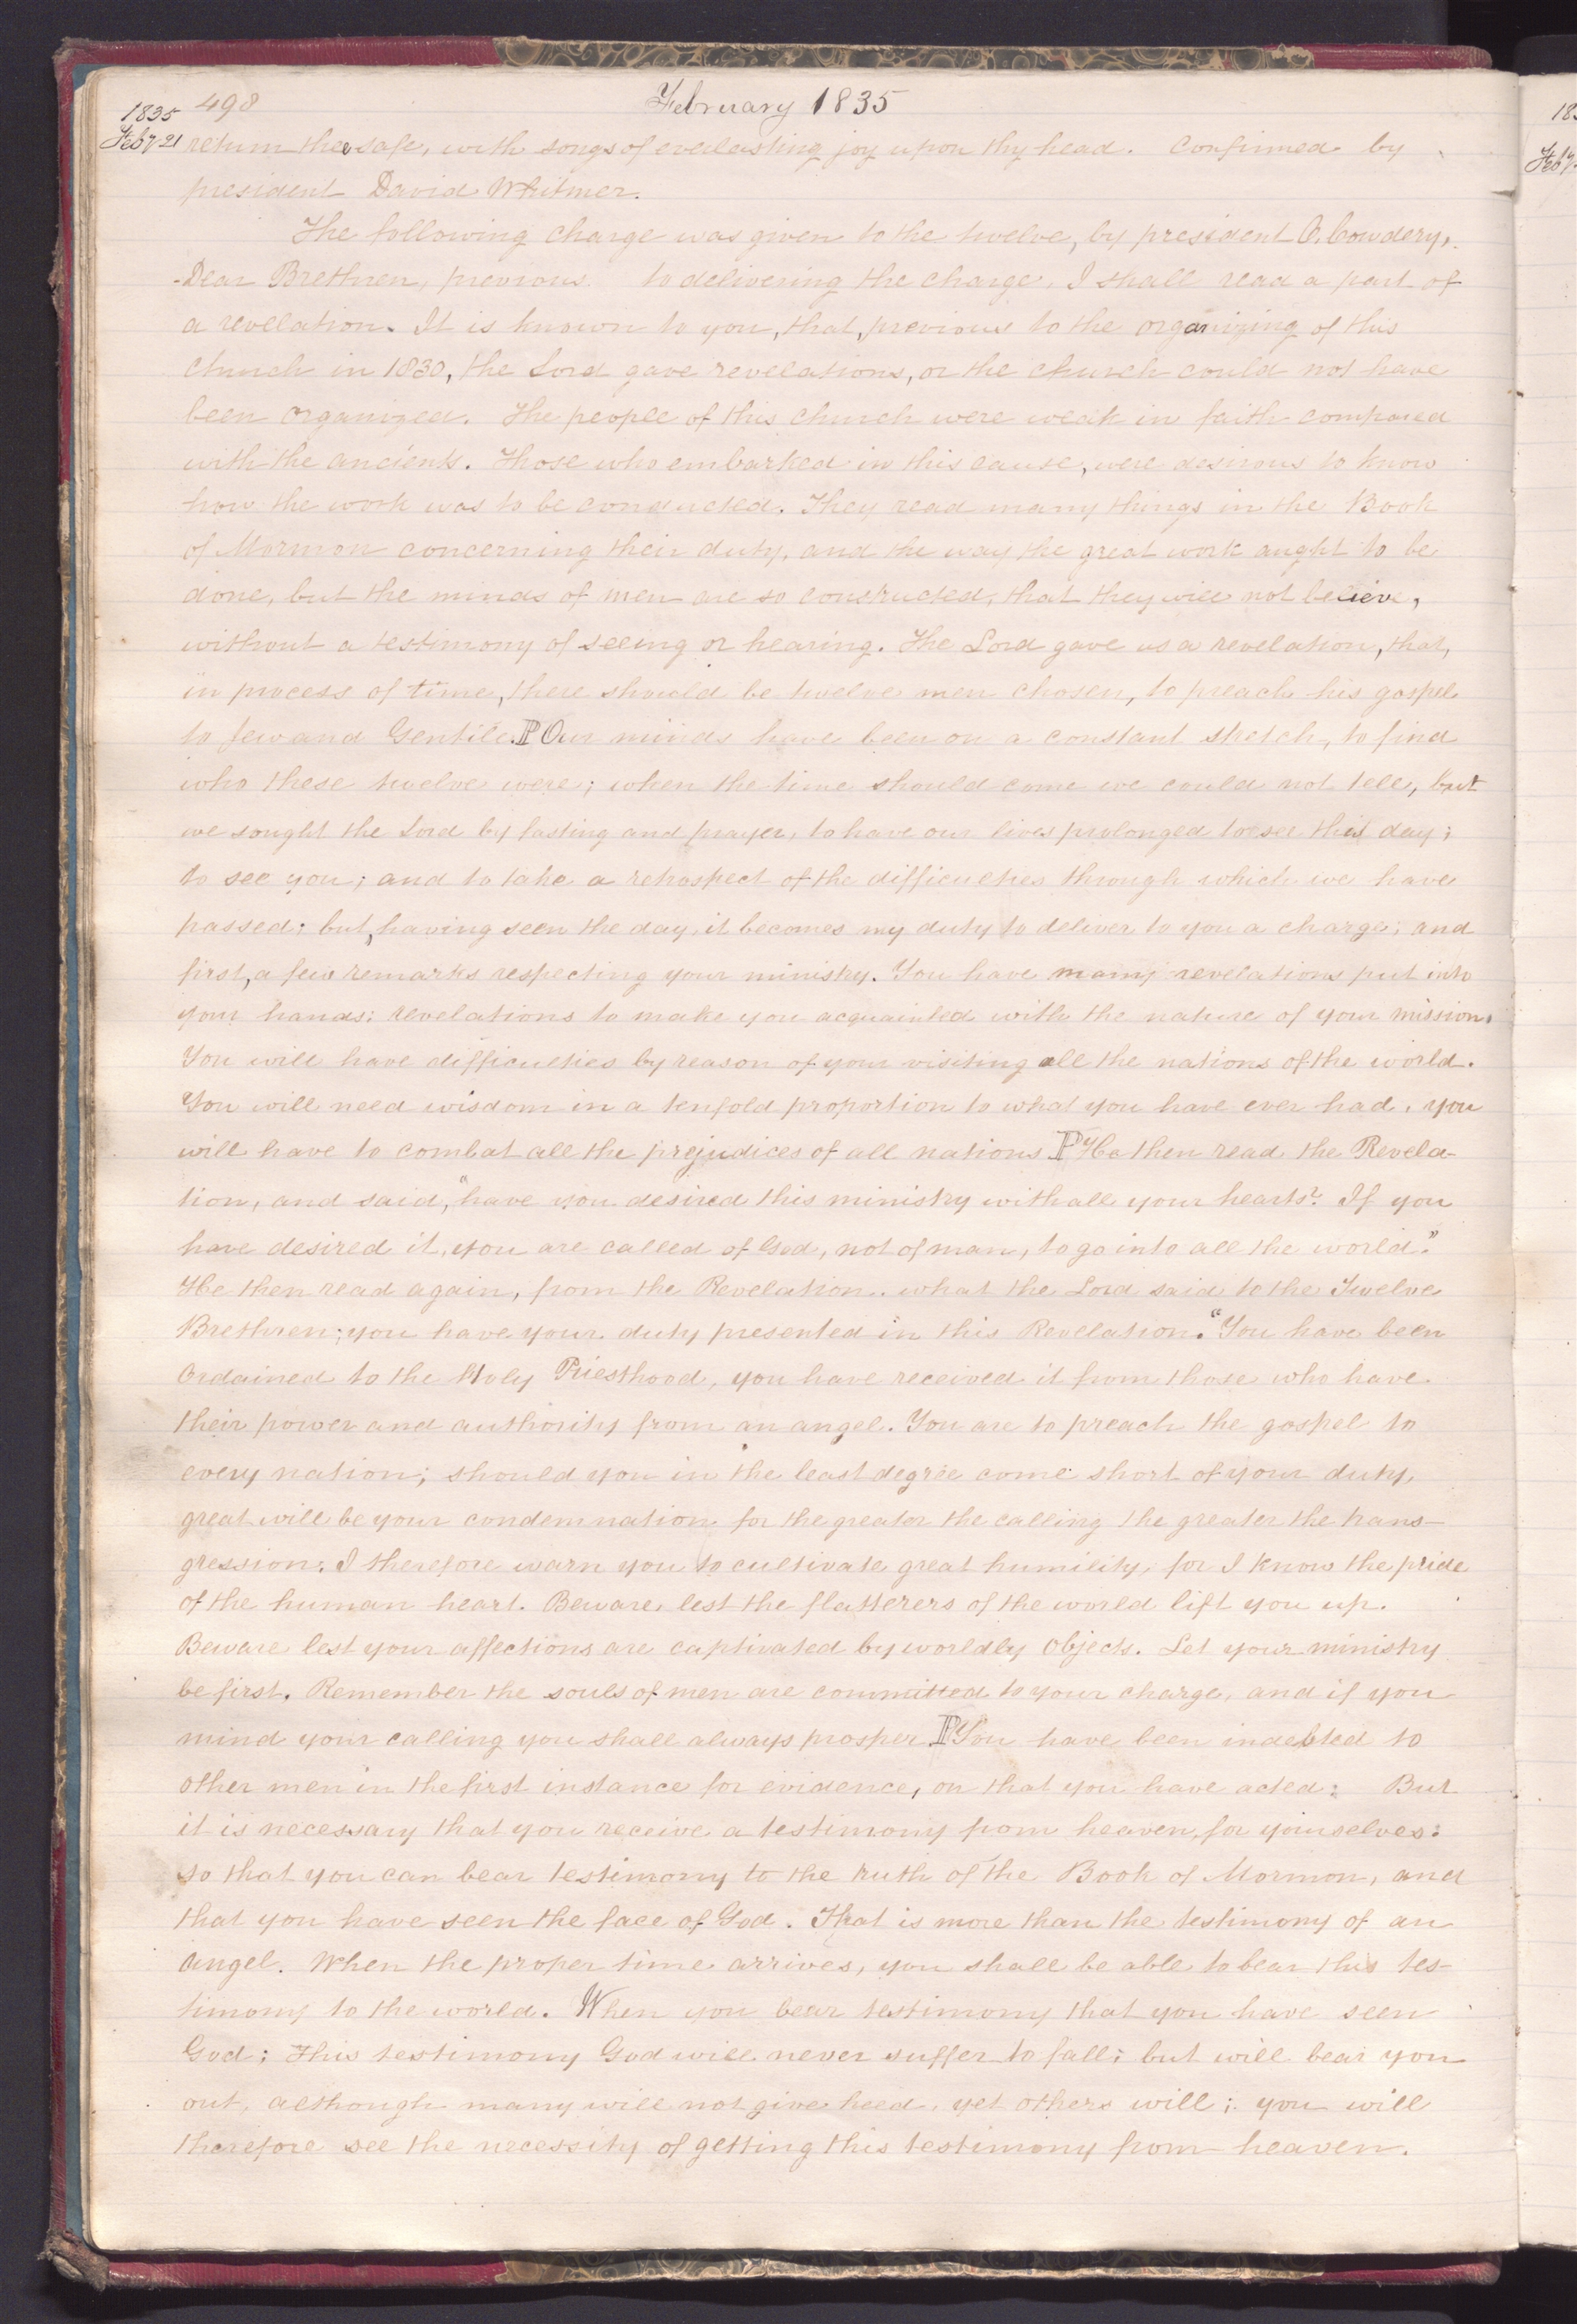 498
February 1835
1835
Feby 21
return thee safe, with songs of everlasting joy upon thy head. Confirmed by
president David Whitmer.
The following charge was given to the twelve, by president O. Cowdery,
Dear Brethren, previous to delivering the charge, I shall read a part of
a revelation. It is known to you, that, previous to the organizing of this
church in 1830, the Lord gave revelations, or the church could not have
been organized. The people of this church were weak in faith compared
with the ancients. Those who embarked in this cause, were desirous to know
how the work was to be conducted. They read many things in the Book
of Mormon concerning their duty, and the way the great work aught to be
done, but the minds of men are so constructed, that they will not believe,
without a testimony of seeing or hearing. The Lord gave us a revelation, that,
in process of time, there should be twelve men chosen, to preach his gospel
to Jew and Gentile. P Our minds have been on a constant stretch, to find
who these twelve were; when the time should come we could not tell, but
we sought the Lord by fasting and prayer, to have our lives prolonged to see this day;
to see you; and to take a retrospect of the difficulties through which we have
passed; but, having seen the day, it becomes my duty to deliver to you a charge; and
first, a few remarks respecting your ministry. You have many revelations put into
your hands; revelations to make you acquainted with the nature of your mission.
You will have difficulties by reason of your visiting all the nations of the world.
You will need wisdom in a tenfold proportion to what you have ever had. you
will have to combat all the prejudices of all nations P He then read the Revela-
tion, and said, "have you desired this ministry with all your hearts? If you
have desired it, you are called of God, not of man, to go into all the world."
He then read again, from the Revelation.. what the Lord said to the Twelve
Brethren; you have your duty presented in this Revelation. "You have been
Ordained to the Holy Priesthood, you have received it from those who have
their power and authority from an angel. You are to preach the gospel to
every nation; should you in the least degree come short of your duty,
great will be your condemnation for the greater the calling the greater the trans-
gression; I therefore warn you to cultivate great humility, for I know the pride
of the human heart. Beware, lest the flatterers of the world lift you up.
Beware lest your affections are captivated by worldly objects. Let your ministry
be first. Remember the souls of men are committed to your charge, and if you
mind your calling you shall always prosper P You have been indebted to
other men in the first instance for evidence, on that you have acted; But
it is necessary that you receive a testimony from heaven, for yourselves;
so that you can bear testimony to the truth of the Book of Mormon, and
that you have seen the face of God. That is more than the testimony of an
angel. When the proper time arrives, you shall be able to bear this tes-
timony to the world. When you bear testimony that you have seen
God; this testimony God will never suffer to fall; but will bear you
out, although many will not give heed, yet others will; you will
therefore see the necessity of getting this testimony from heaven.